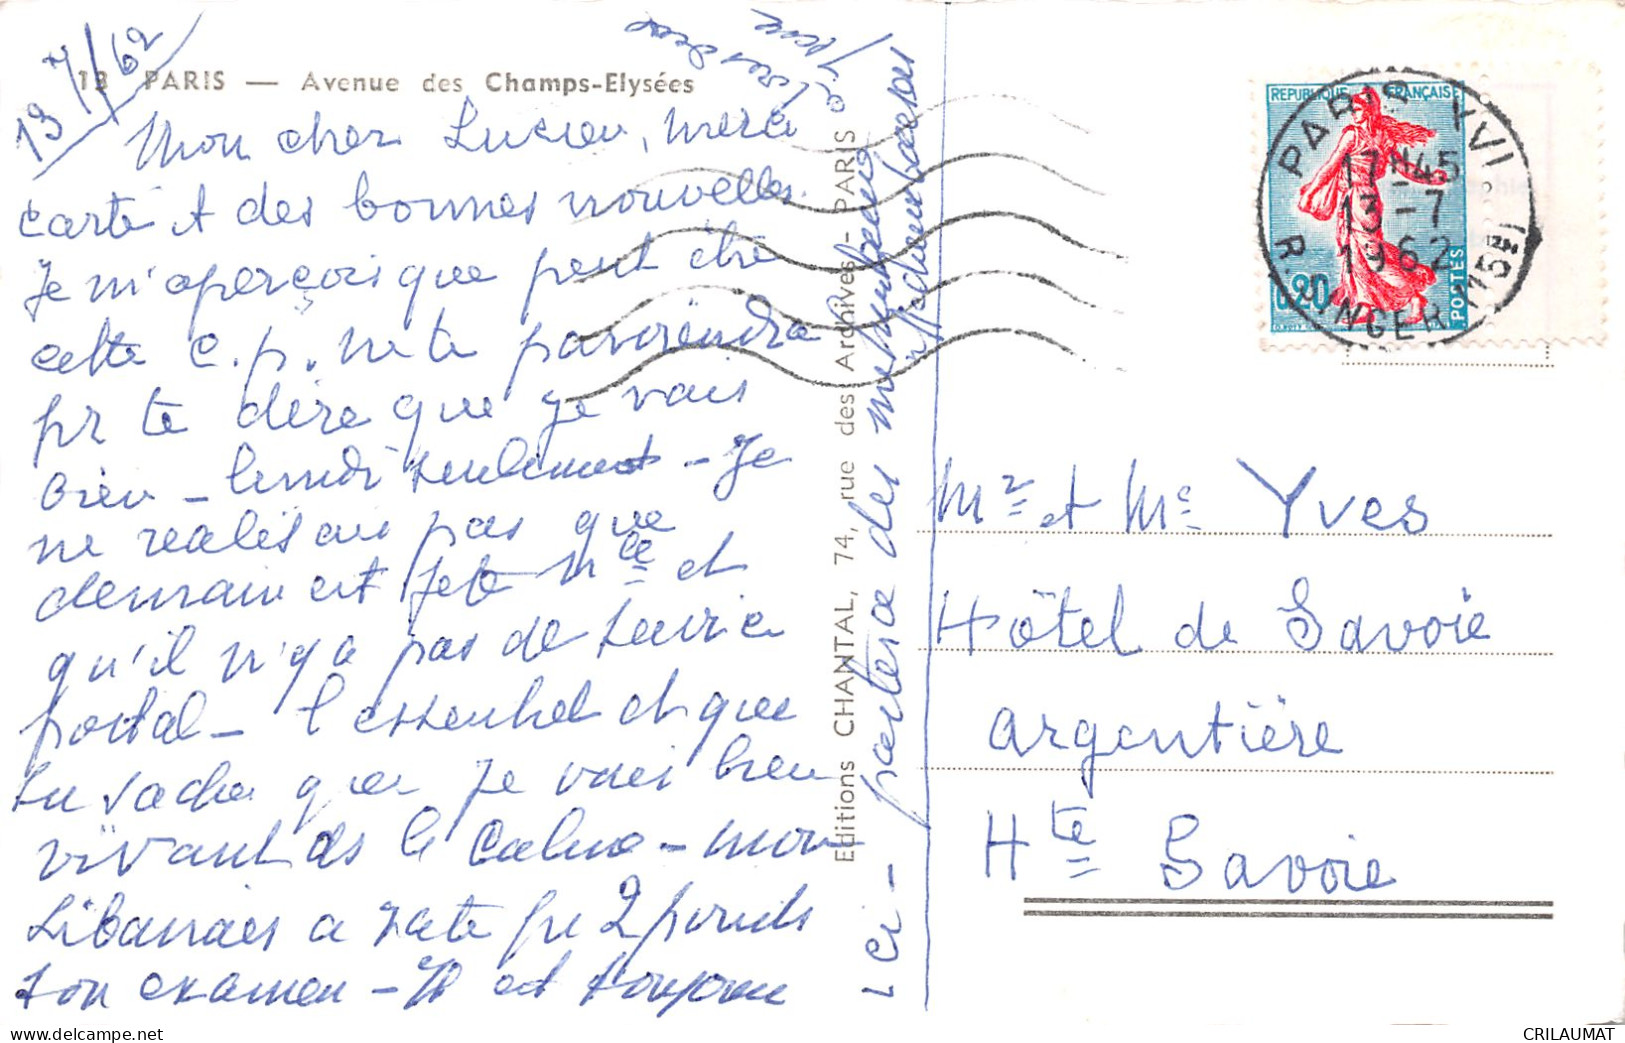 13/7/62
13 PARIS — Avenue des Champs-Elysées
Mon cher Lucien, merci
carte et des bonnes nouvelles.
Je m'aperçois que peut être
cette c.p. ne te parviendra
pr te dire que je vais
bien - lundi seulement - Je
ne réalisais pas que
demain est fête Nle et
qu'il n'y a pas de service
postal - l'essentiel et que
tu saches que je vais bien
vivant ds le calme - mon
Libanais a raté pr 2 points
son examen - Il est toujours
ici - partira des
Editions CHANTAL, 74, rue des Archives - PARIS
REPUBLIQUE FRANÇAISE
0,20
POSTES
PARIS XVI
17H45
13-7
1962
R. SINGER (15E)
Mr et Me Yves
Hôtel de Savoie
Argentière
Hte Savoie
CRILAUMAT